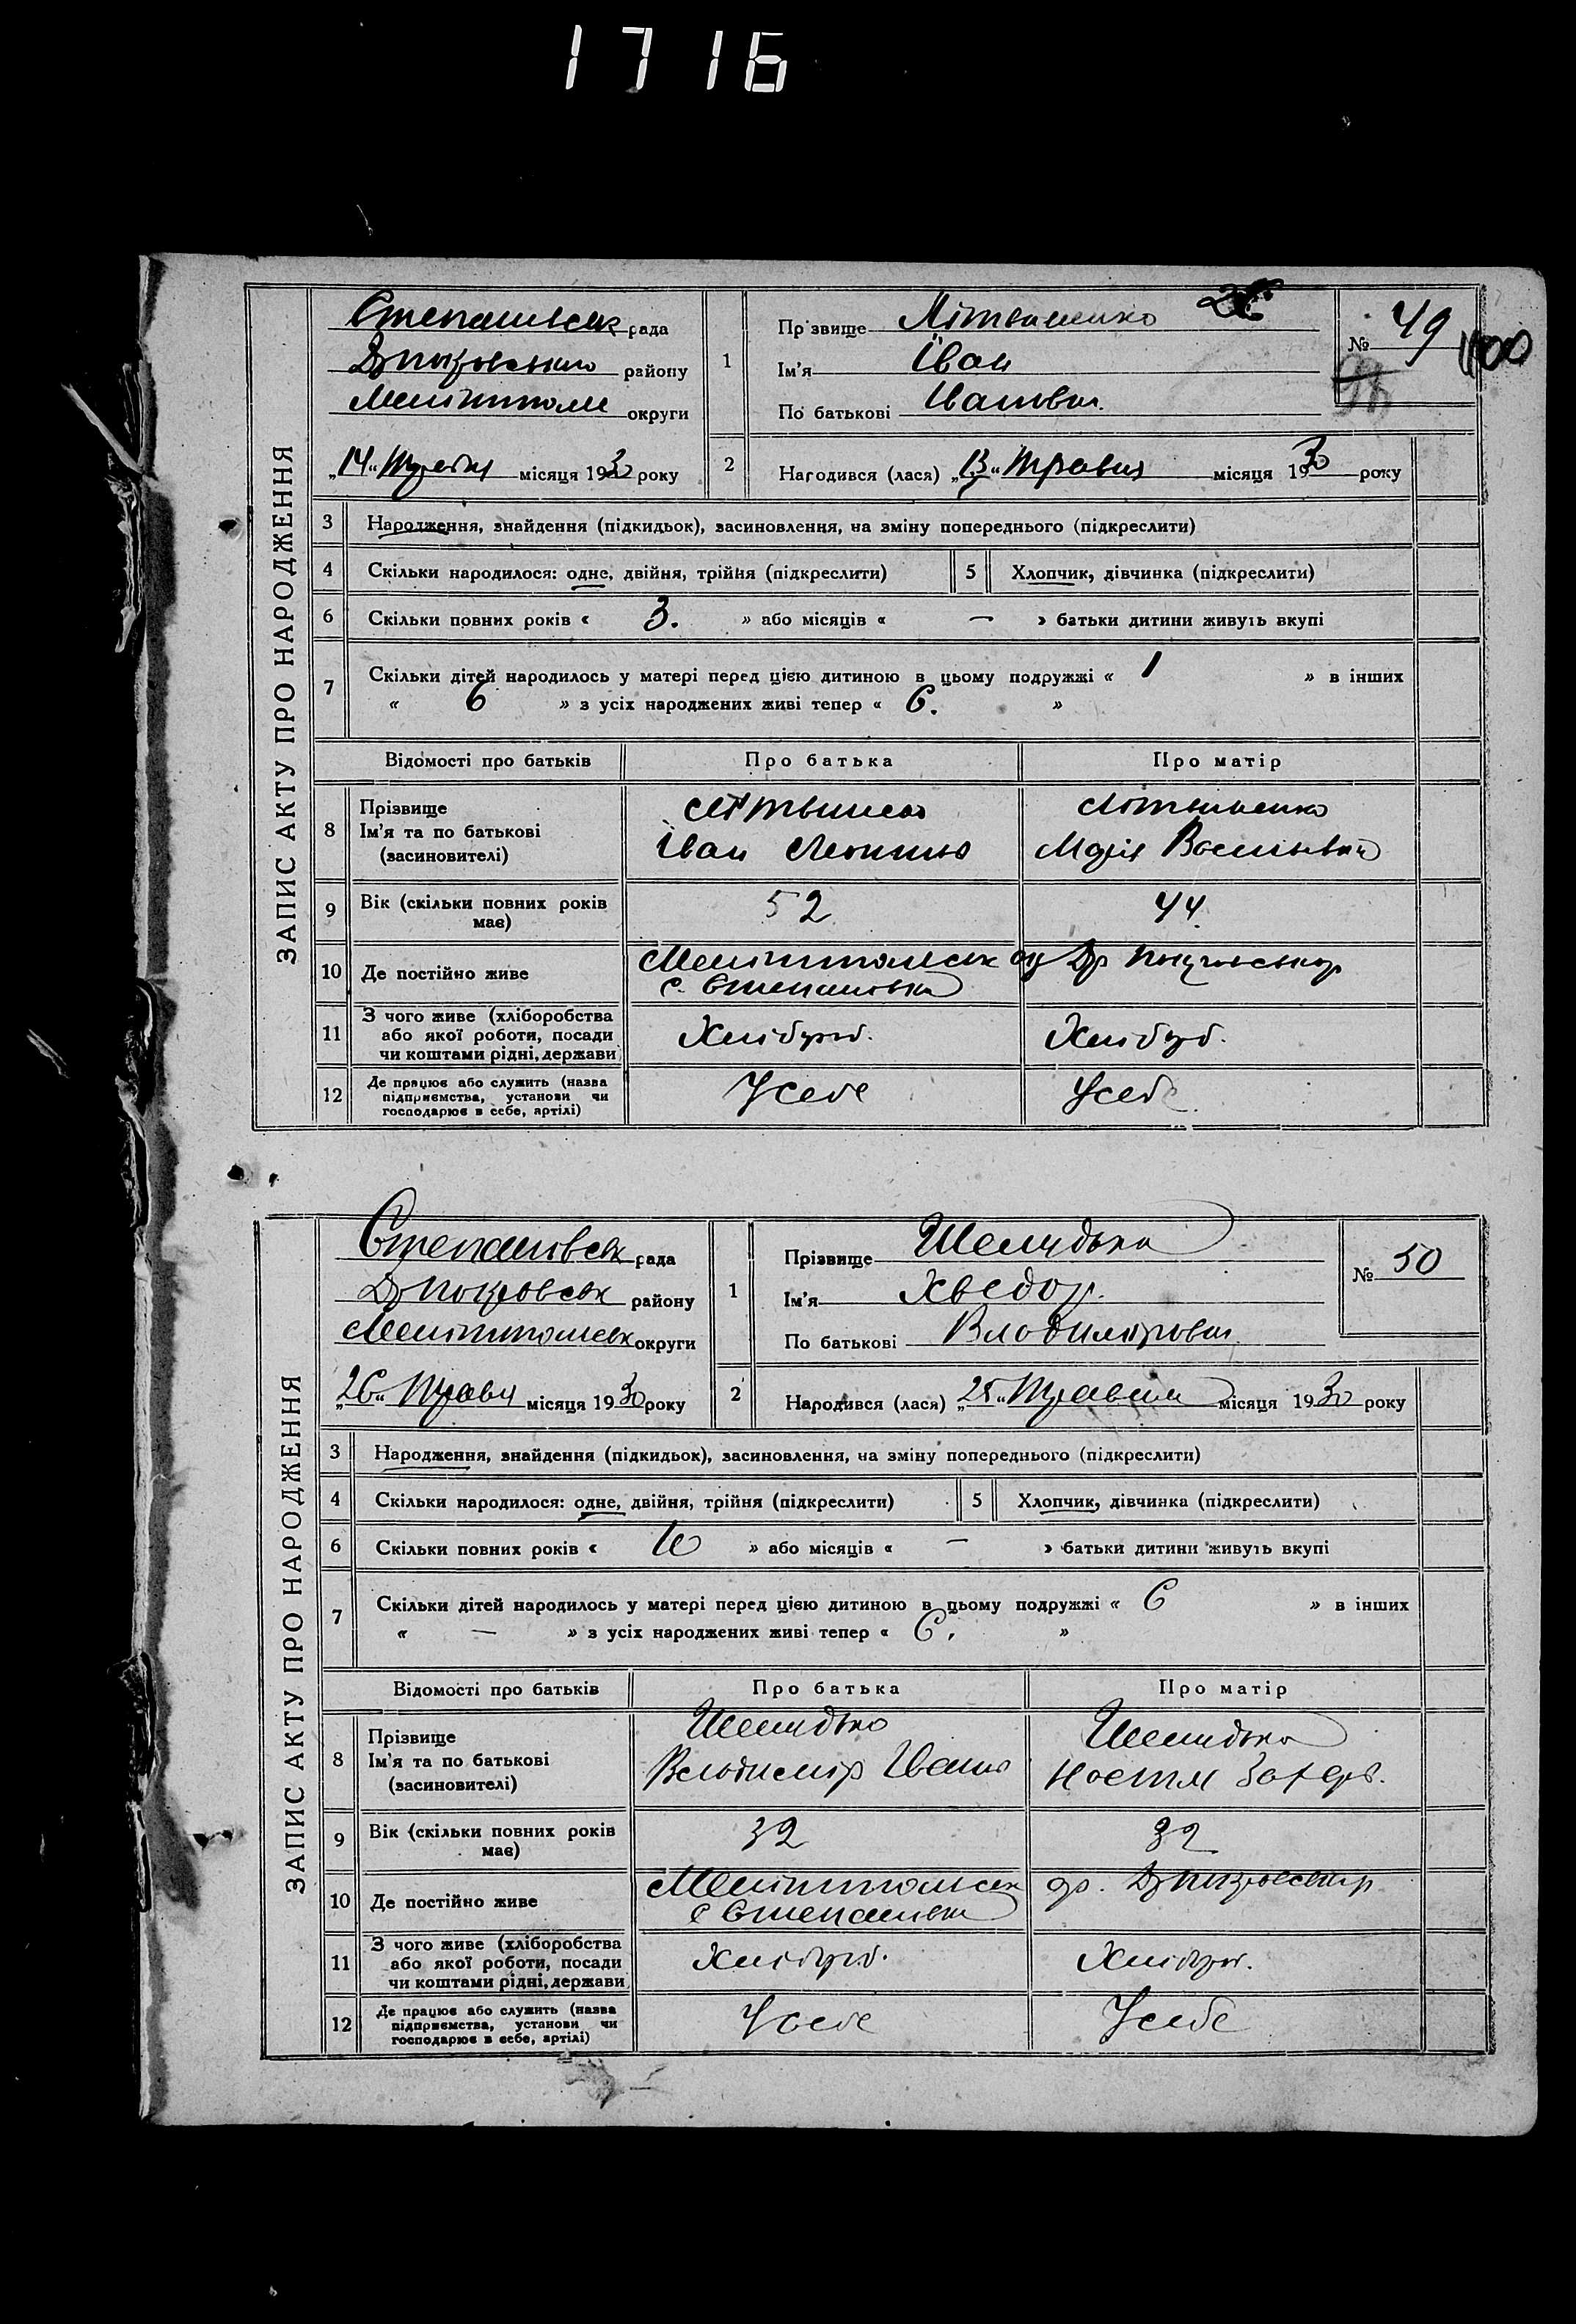 1716
ЗАПИС АКТУ ПРО НАРОДЖЕННЯ
Степанівськ рада
району
округи
„14“ Травня місяця 1930 року
1
Прізвище Літвиненко
Ім’я Іван
По батькові Іванович
№ 49
2
Народився (лася) „13“ Травня місяця 1930 року
3 Народження, знайдення (підкидьок), засиновлення, на зміну попереднього (підкреслити)
4 Скільки народилося: одне, двійня, трійня (підкреслити) 5 Хлопчик, дівчинка (підкреслити)
6 Скільки повних років « 3. » або місяців « — » батьки дитини живуть вкупі
7 Скільки дітей народилось у матері перед цією дитиною в цьому подружжі « 1 » в інших
« 6 » з усіх народжених живі тепер « 6. »
Відомості про батьків Про батька Про матір
8 Прізвище
Ім’я та по батькові
(засиновителі)
Іван
Літвиненко
Марія
9 Вік (скільки повних років
має)
52 44
10 Де постійно живе
с. Степанівка
11 З чого живе (хліборобства
або якої роботи, посади
чи коштами рідні, держави
Хлібороб. Хлібороб.
12 Де працює або служить (назва
підприємства, установи чи
господарює в себе, артілі)
У себе У себе
ЗАПИС АКТУ ПРО НАРОДЖЕННЯ
Степановськ рада
Дпокровськ району
Мелітопольськ округи
„26“ Травня місяця 1930 року
1
Прізвище
Ім’я Хведор.
По батькові Володимірович
№ 50
2
Народився (лася) „25“ Травня місяця 1930 року
3 Народження, знайдення (підкидьок), засиновлення, на зміну попереднього (підкреслити)
4 Скільки народилося: одне, двійня, трійня (підкреслити) 5 Хлопчик, дівчинка (підкреслити)
6 Скільки повних років « 10 » або місяців « — » батьки дитини живуть вкупі
7 Скільки дітей народилось у матері перед цією дитиною в цьому подружжі « 6 » в інших
« — » з усіх народжених живі тепер « 6. »
Відомості про батьків Про батька Про матір
8 Прізвище
Ім’я та по батькові
(засиновителі)
Володимір
9 Вік (скільки повних років
має)
32 32
10 Де постійно живе
Мелітопольськ
с Степанівка
11 З чого живе (хліборобства
або якої роботи, посади
чи коштами рідні, держави
Хлібороб. Хлібороб.
12 Де працює або служить (назва
підприємства, установи чи
господарює в себе, артілі)
У себе У себе